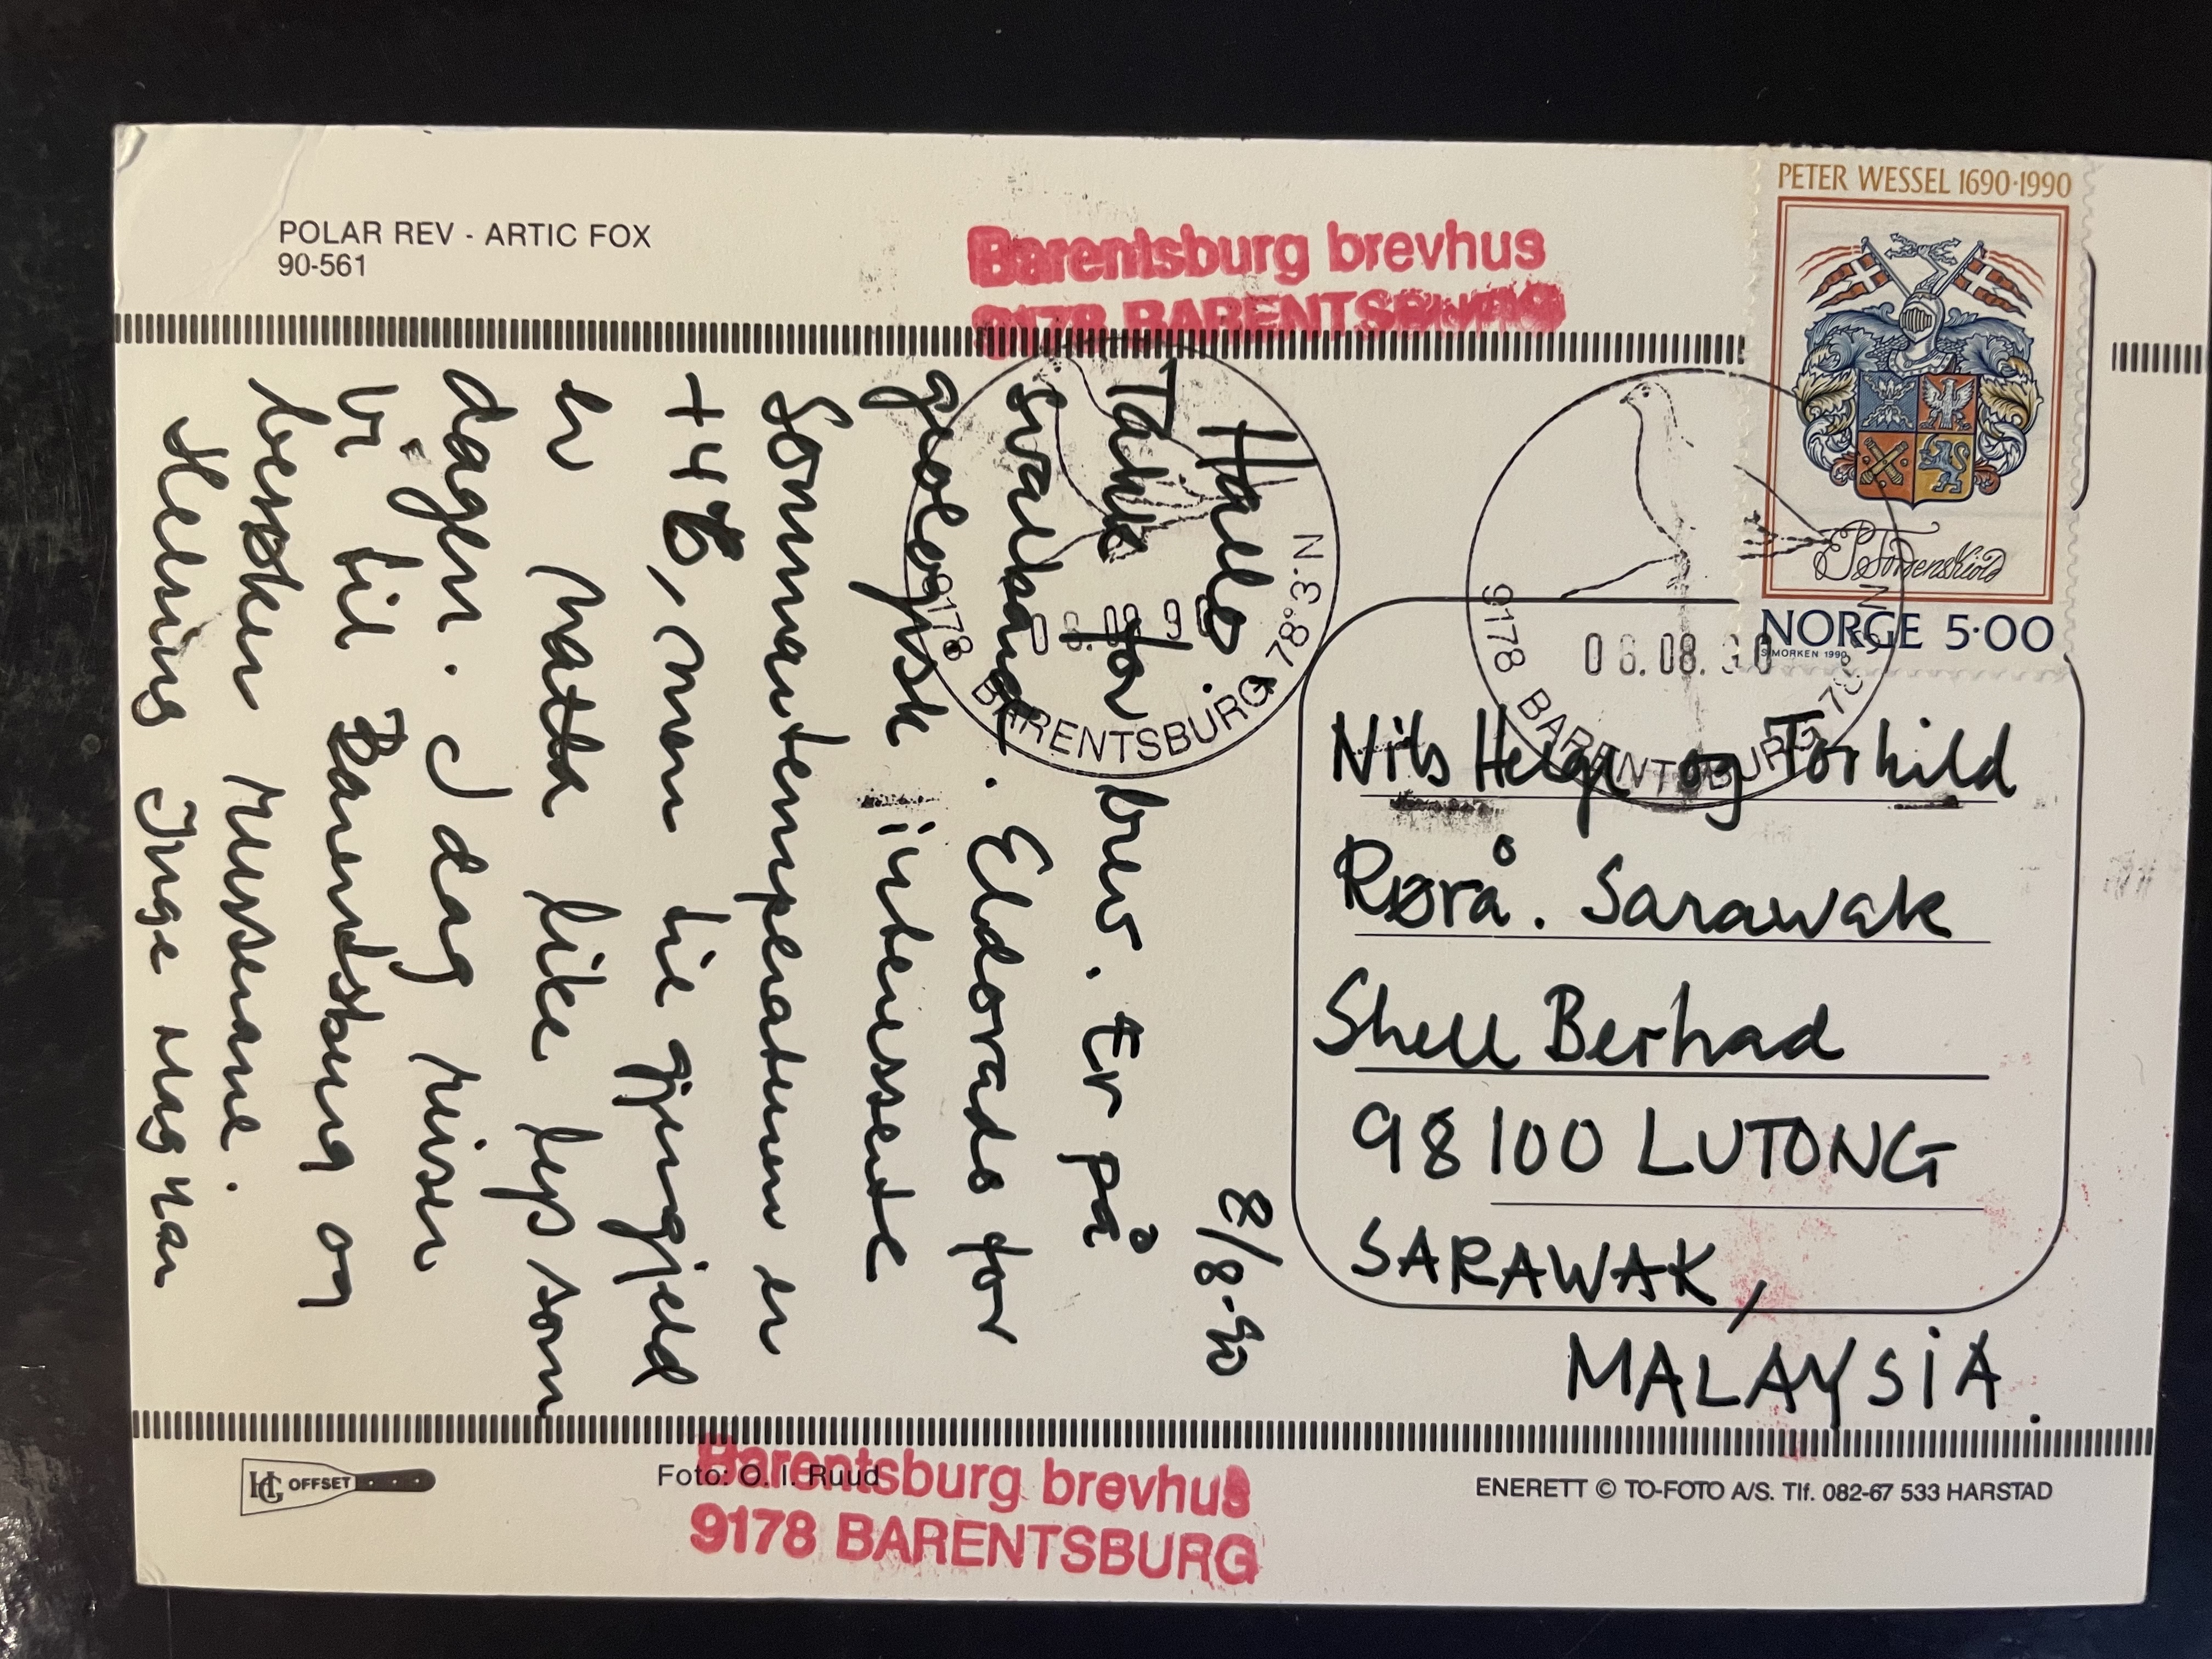 POLAR REV - ARTIC FOX
90-561
Barentsburg brevhus
9178 BARENTSBURG
PETER WESSEL 1690·1990
P. Tordenskiold
NORGE 5·00
S. MORKEN 1990
9178 BARENTSBURG 78°3'N
08.08.90
9178 BARENTSBURG 78°
08.08.90
Hallo 8/8-90
Takk for brev. Er på
Svalbard. Eldorado for
geologisk interesserte
Sommertemperaturen er
+4°C, men til gjengjeld
er natta like lys som
dagen. I dag reiser
vi til Barentsburg og
besøker russerne.
Helsing Inge Magnar
Nils Helge og Torhild
Rørå. Sarawak
Shell Berhad
98100 LUTONG
SARAWAK,
MALAYSIA.
HG OFFSET
Foto: O. I. Ruud
Barentsburg brevhus
9178 BARENTSBURG
ENERETT © TO-FOTO A/S. Tlf. 082-67 533 HARSTAD